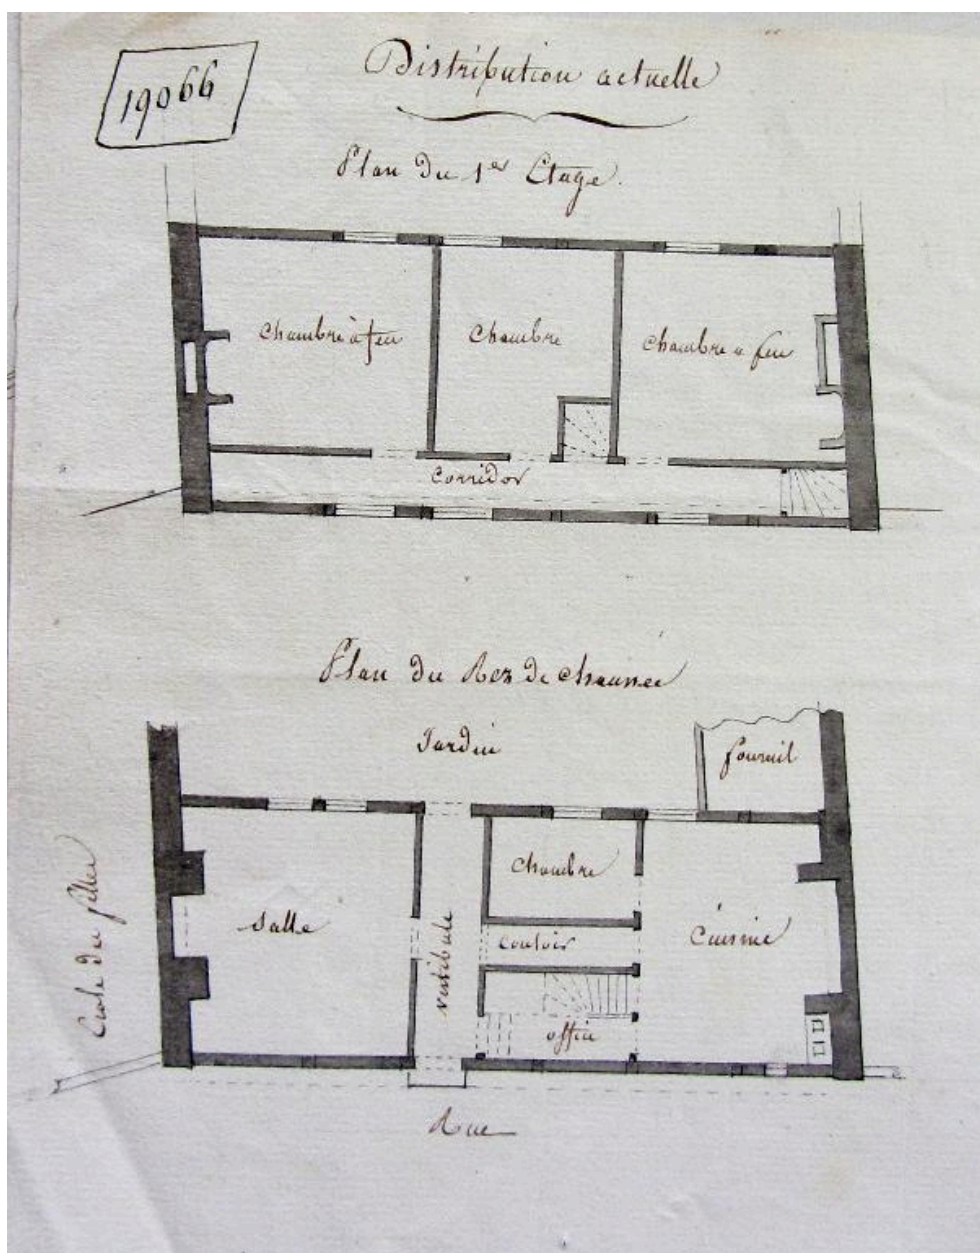 19066
Distribution actuelle
Plan du 1er Etage.
Chambre à feu
Chambre
Chambre a feu
Corridor
Plan du Rez de chaussée
Jardin
fournil
Ecole des filles
Salle
vestibule
Chambre
Couloir
Cuisine
office
Rue